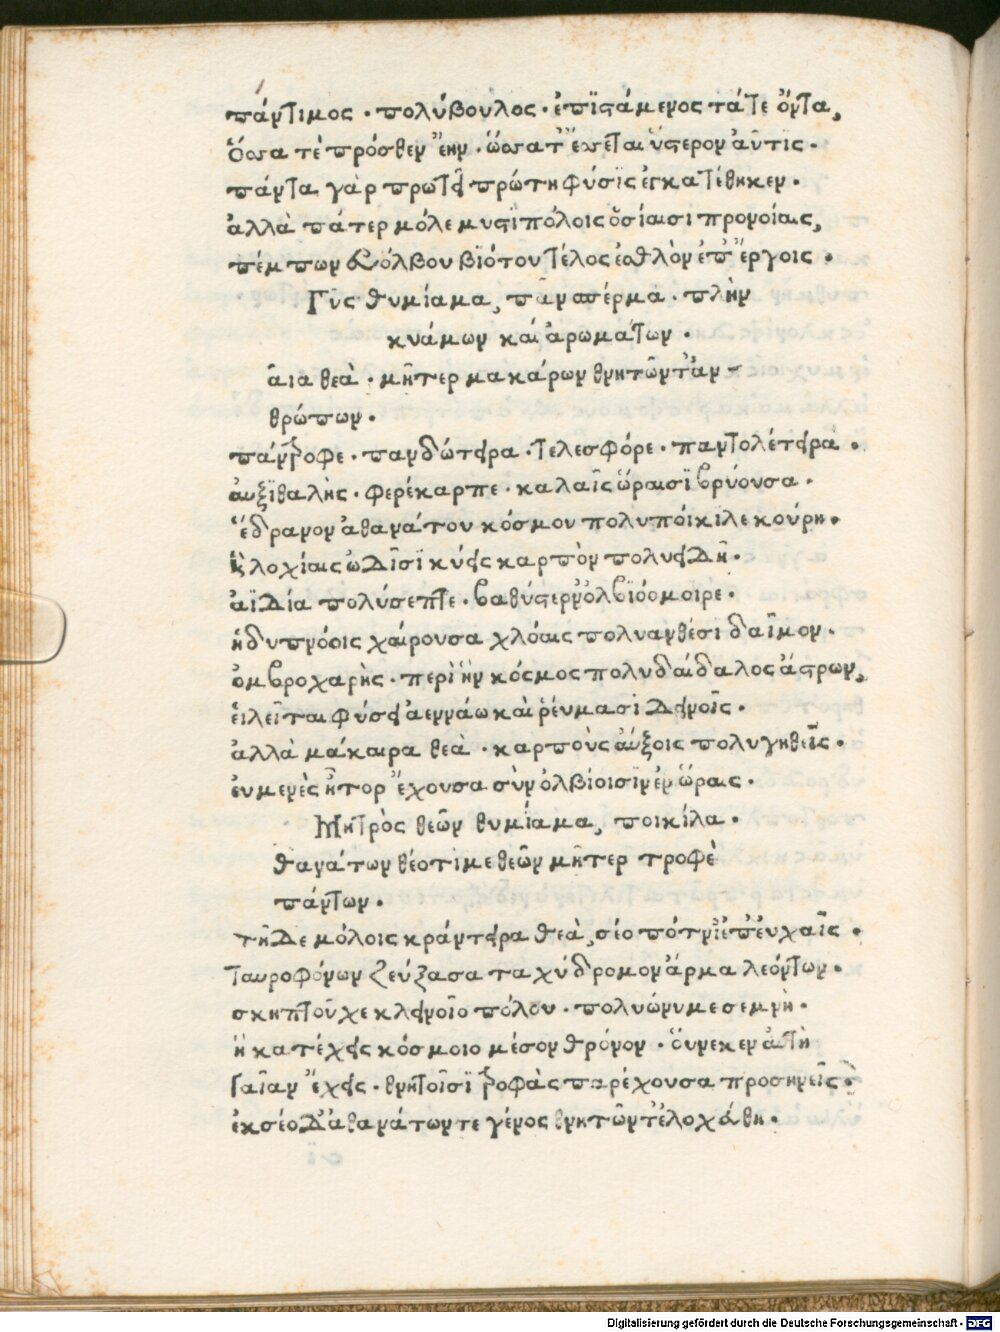 πάντιμος · πολύβουλος · ἐπϊστάμενος τά τε ὄντα,
ὅσα τὲ πρόσθεν ἔην · ὥσα τ' ἔσσεται ὕστερον αὖτις ·
πάντα γὰρ πρωτῆ πρώτη φύσϊς ἐγκατέθηκεν ·
ἀλλὰ πάτερ μόλε μυστϊπόλοις ὁσίαισι προνοίαις,
πέμπων δ' ὄλβου βϊότου τέλος ἐσθλὸν ἐπ' ἔργοις ·
Γῆς θυμίαμα, πᾶν σπέρμα · πλὴν
κυάμων καὶ ἀρωμάτων ·
αῖα θεὰ · μῆτερ μακάρων θνητῶν τ' ἀν-
θρώπων ·
πάντροφε · πανδώτειρα · τελεσφόρε · παντολέτειρα ·
αὐξϊθαλὴς · φερέκαρπε · καλαῖς ὥραισϊ βρύουσα ·
ἕδρανον ἀθανάτου κόσμου πολυποίκιλε κούρη ·
ἣ λοχίαις ὠδῖσϊ κύεις καρπὸν πολυειδῆ ·
αϊδία πολύσεπτε · βαθύστερν' ὀλβϊόμοιρε ·
ἡδυπνόοις χαίρουσα χλόαις πολυανθέσϊ δαῖμον ·
ὀμβροχαρὴς · περὶ ἣν κόσμος πολυδαίδαλος ἄστρων,
εἱλεῖται φύσει ἀεννάω καὶ ῥεύμασϊ δεινοῖς ·
ἀλλὰ μάκαιρα θεὰ · καρποὺς αὔξοις πολυγηθεῖς ·
ἐυμενὲς ἦτορ ἔχουσα σὺν ὀλβίοισιν ἐν ὥραις ·
Μητρὸς θεῶν θυμίαμα, ποικίλα ·
θανάτων θεότιμε θεῶν μῆτερ τροφὲ
πάντων ·
τῆδε μόλοις κράντειρα θεὰ, σέο πότνϊ' ἐπ' εὐχαῖς ·
ταυροφόνων ζεύξασα ταχύδρομον ἅρμα λεόντων ·
σκηπτοῦχε κλεινοῖο πόλου · πολυώνυμε σεμνὴ ·
ἣ κατέχεις κόσμοιο μέσον θρόνον · οὕνεκεν αὐτὴ
γαῖαν ἔχεις · θνητοῖσϊ τροφὰς παρέχουσα προσηνεῖς ·
ἐκ σέο δ' ἀθανάτων τε γένος θνητῶν τ' ἐλοχεύθη ·
Digitalisierung gefördert durch die Deutsche Forschungsgemeinschaft - DFG